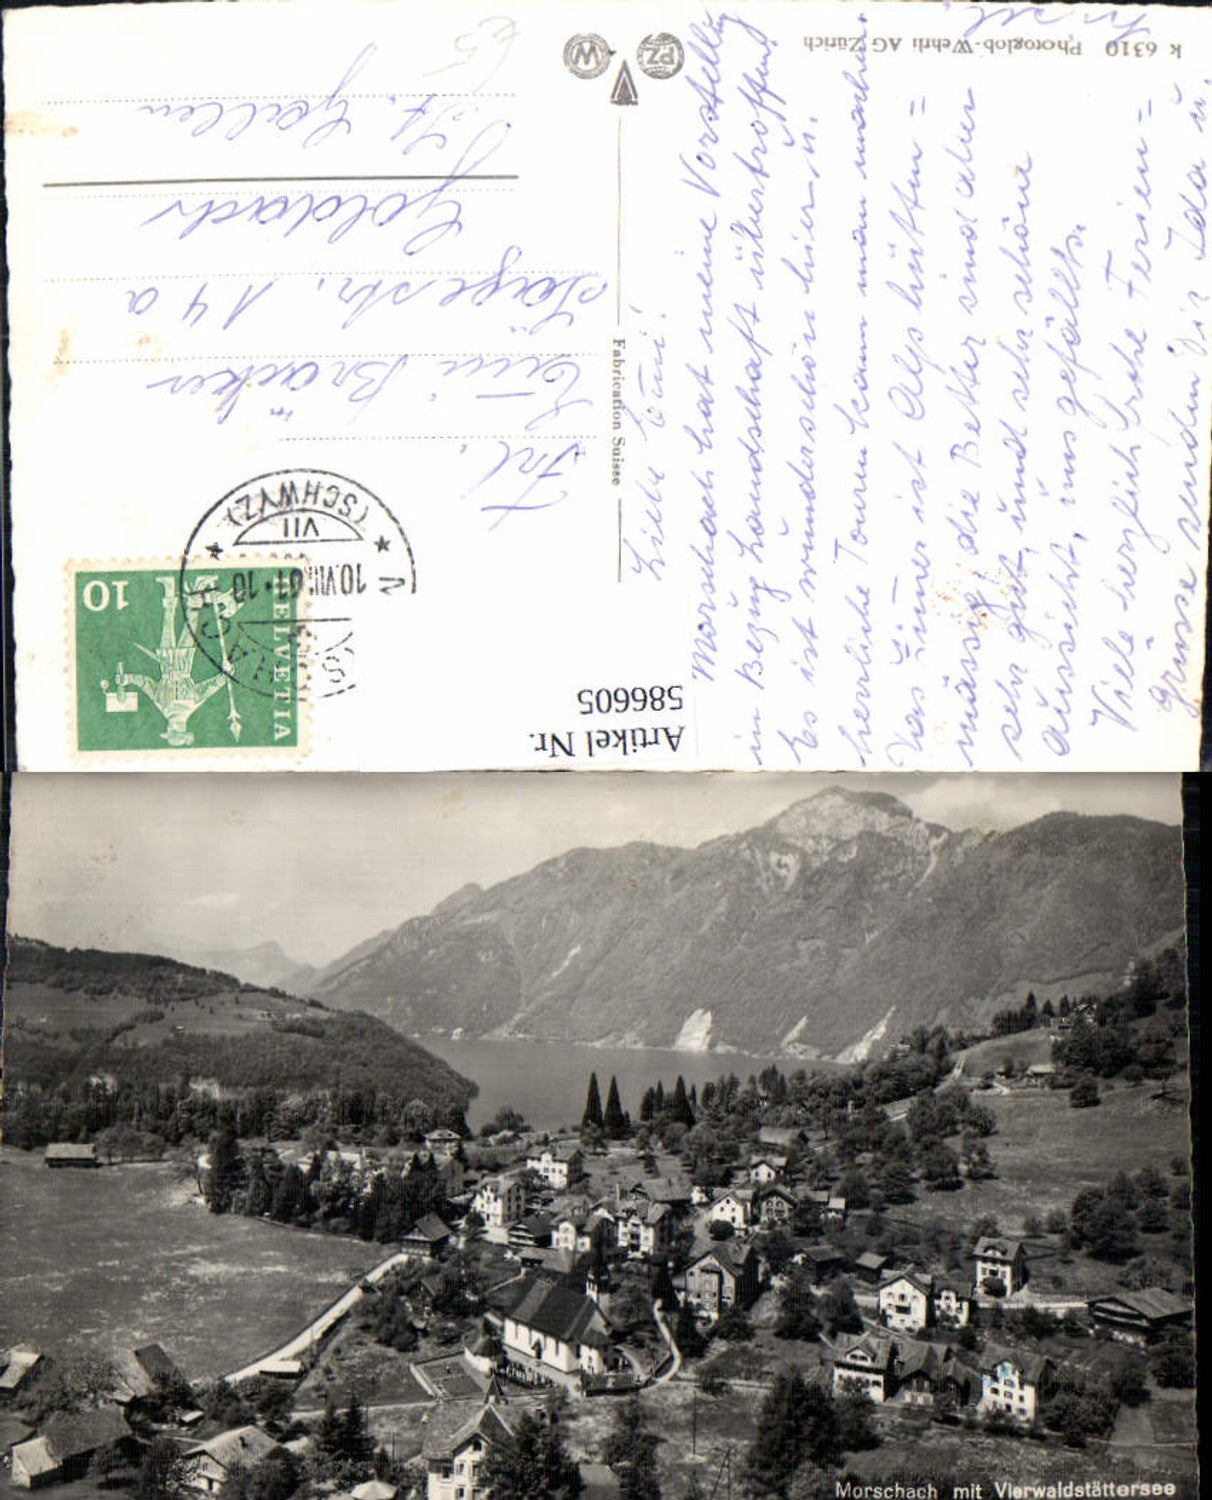 K 6310 Photoglob-Wehrli AG Zürich
PZ
W
Fabrication Suisse
Liebe Erni!
Morschach hat meine Vorstellung
in Bezug Landschaft übertroffen!
Es ist wunderschön hier u.
herrliche Touren kann man machen
Das Zimer ist Alphütten=
mässig, die Better sind aber
sehr gut, und sehr schöne
Aussicht, uns gefällts.
Viele herzlich frohe Ferien=
grüsse senden Dir Ida u.
HELVETIA
10
(SCHWYZ)
VII
Frl.
Bräcker
str. 14 a
Goldach
St. Gallen
Artikel Nr.
586605
Morschach mit Vierwaldstättersee